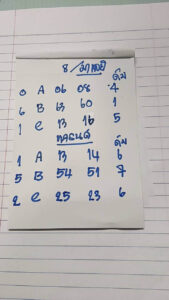 8/มกราคม
ดับ
0 A 06 08 4
6 B 63 60 1
1 C 13 16 5
ดับ
1 A 13 14 6
5 B 54 51 7
2 C 25 23 6